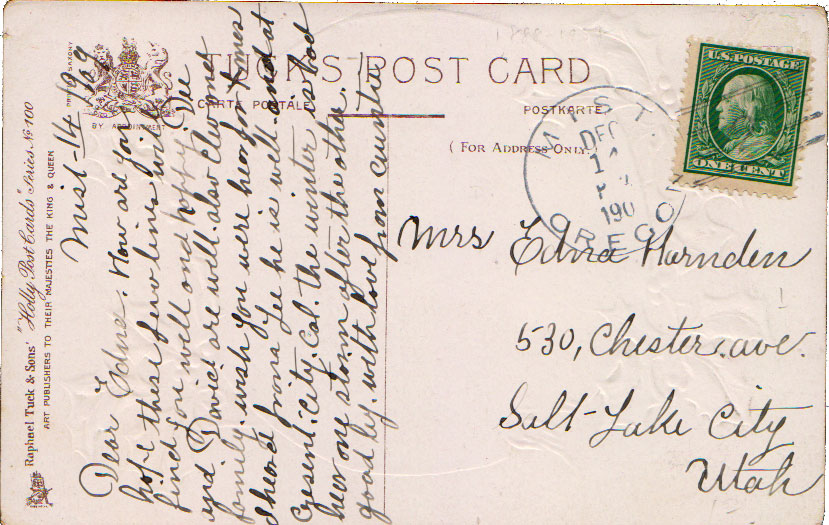 TUCK'S POST CARD
CARTE POSTALE
POSTKARTE
( For Address Only. )
BY APPOINTMENT
Raphael Tuck & Sons' "Holly Post Cards" Series No 100
ART PUBLISHERS TO THEIR MAJESTIES THE KING & QUEEN
U.S. POSTAGE
ONE CENT
MIST
DEC
190
OREGON
Mist-14 1909
Dear Edna. How are you
hope these few lines will
find you well and happy. Dee
and David are well. also Elwood
family. wish you were hear for Xmas
I heard from Lee he is well and at
Cresent. City. Cal. the winter is bad
hear one storm after the other.
good by. with love from
Mrs Edna Harnden
530, Chester. ave.
Salt-Lake City
Utah